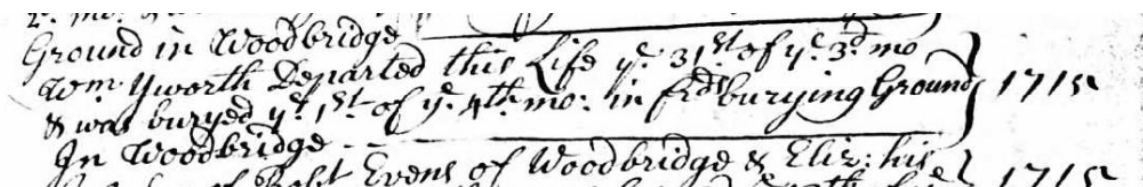 Ground in Woodbridge
Wm Yworth Departed this Life ye. 31st of ye. 3d mo
& was buryed ye. 1st of ye. 4th mo: in frds burying Ground } 1715
In Woodbridge
of Robt Evens of Woodbridge & Eliz: his } 1715